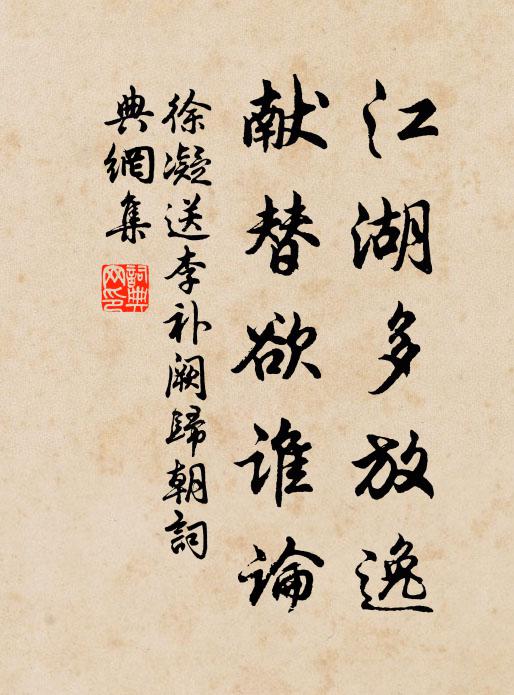 江湖多放逸
献替欲谁論
徐凝送李补阙歸朝詞
典網集
詞典网印